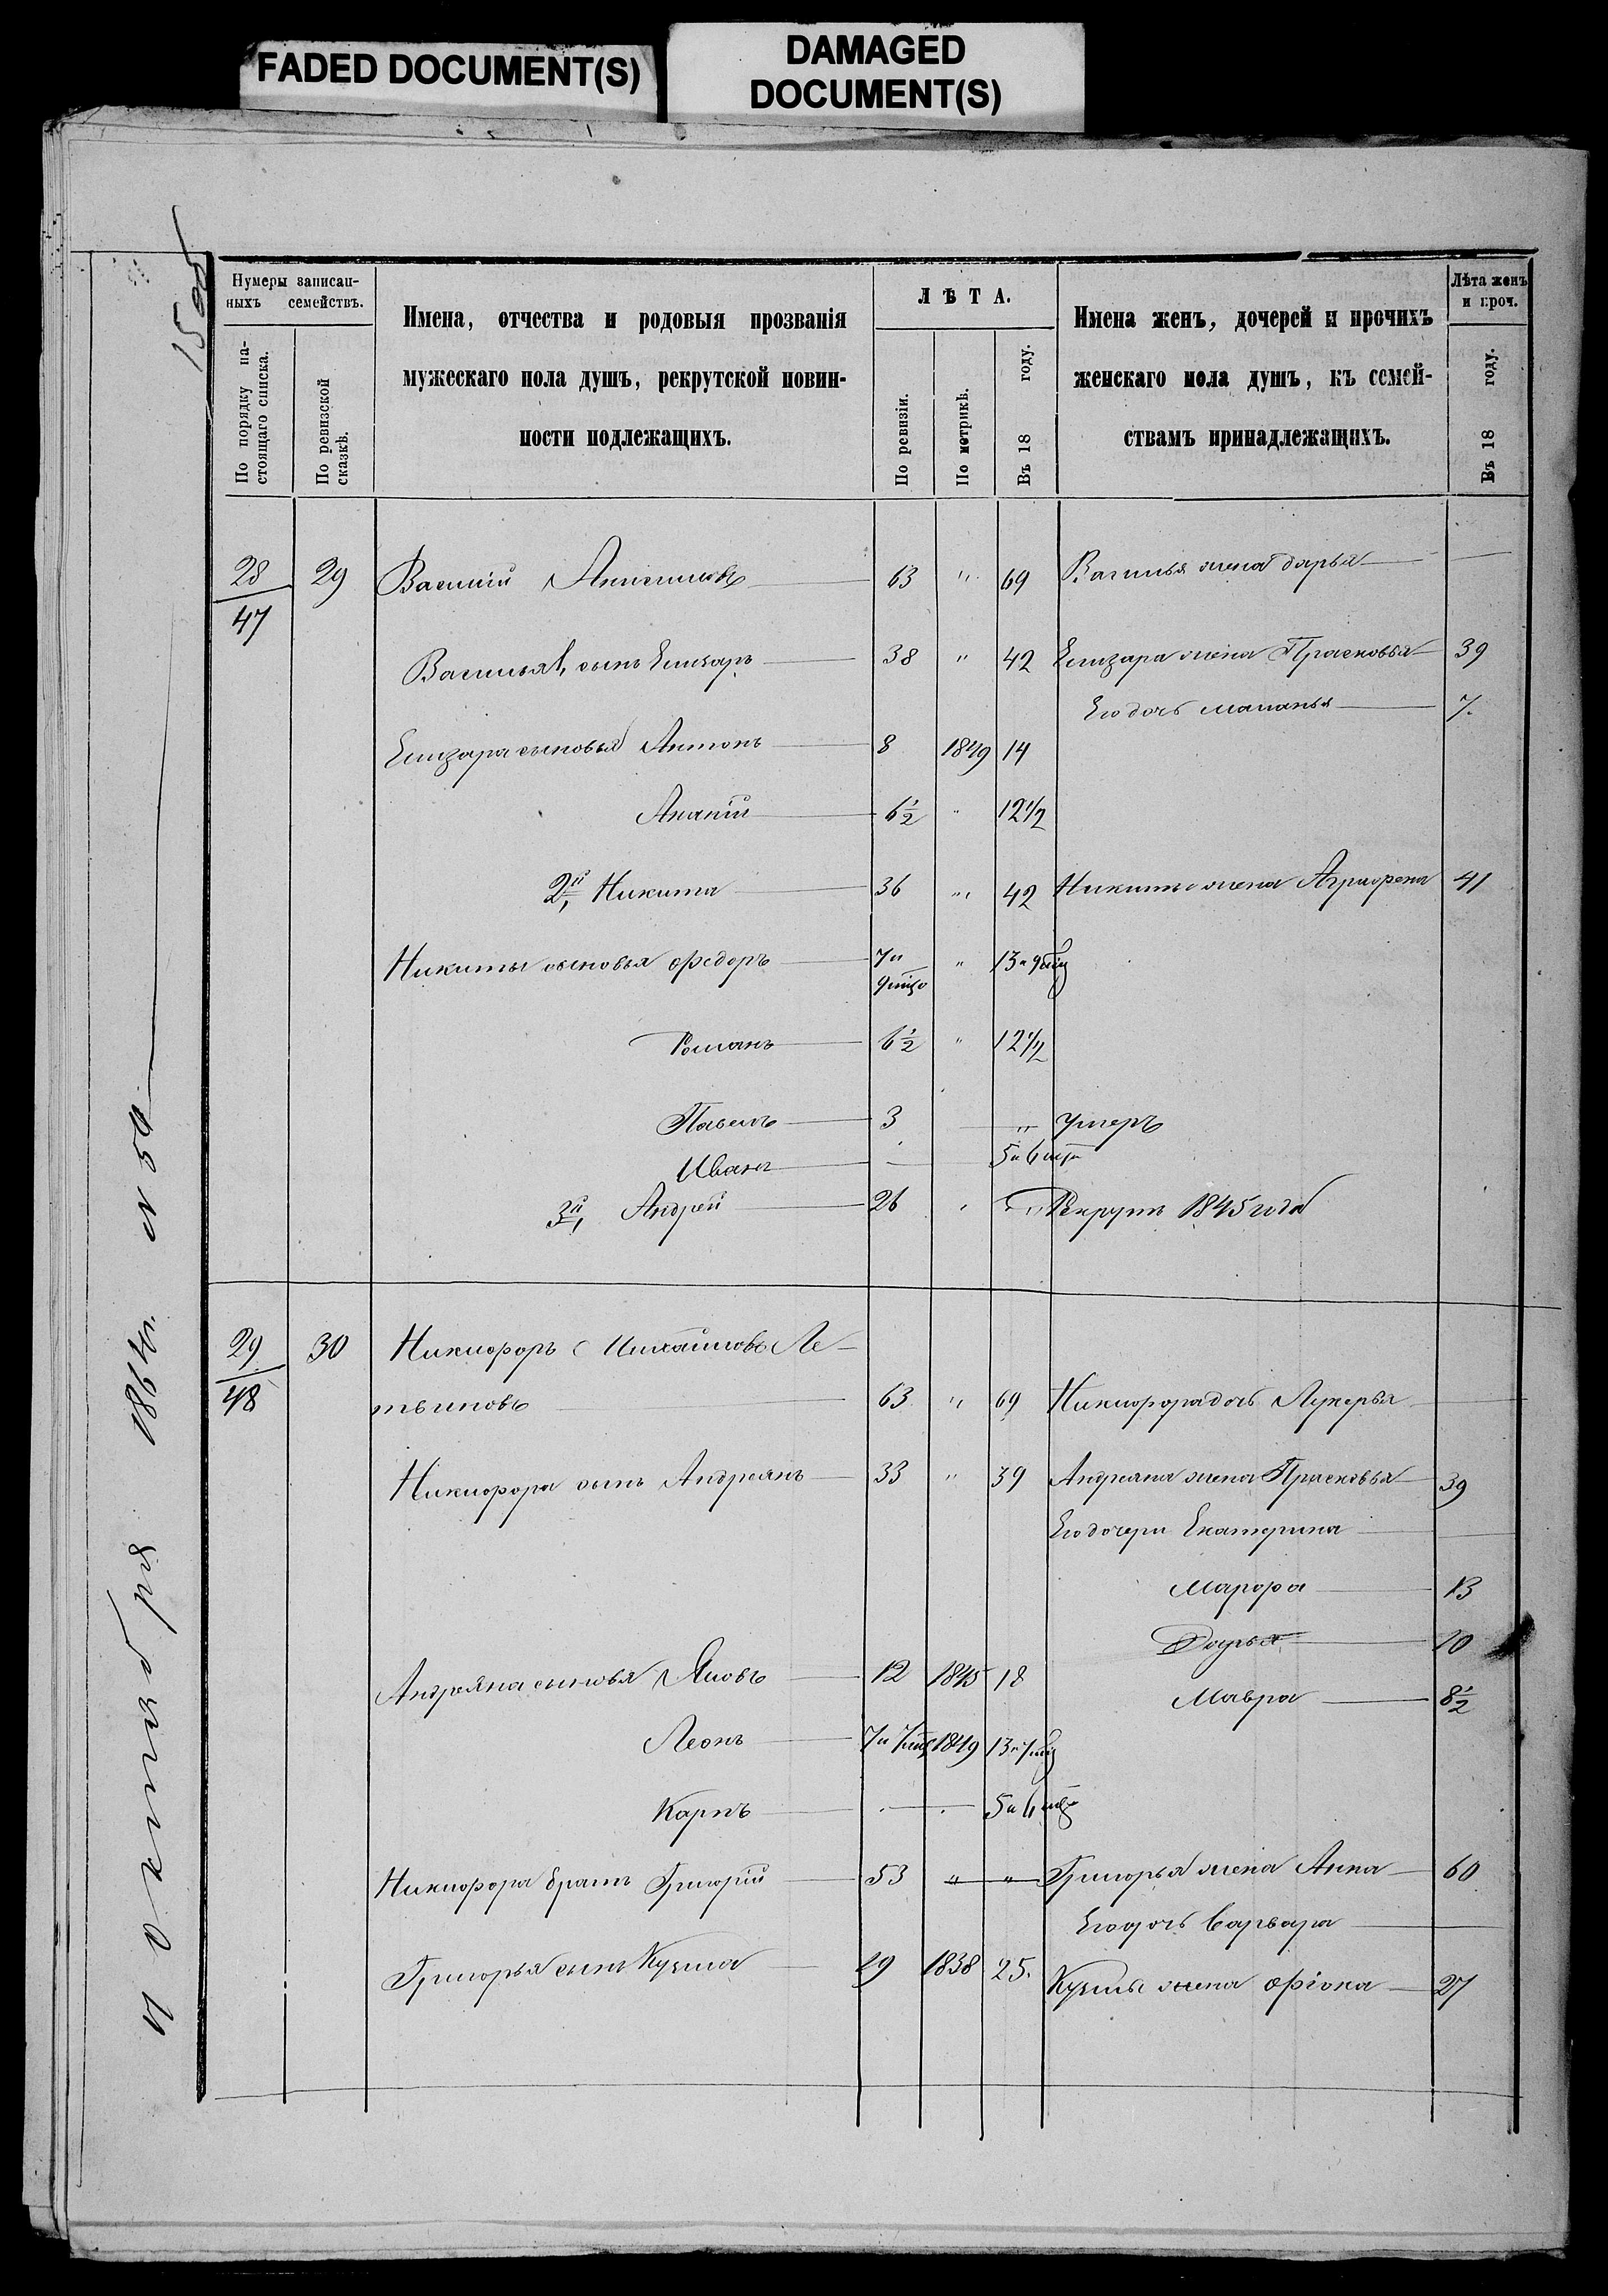 FADED DOCUMENT(S)
DAMAGED
DOCUMENT(S)
Нумеры записан-
ныхъ семействъ.
По порядку на-
стоящаго списка.
По ревизской
сказкѣ.
Имена, отчества и родовыя прозванія
мужескаго пола душъ, рекрутской повин-
ности подлежащихъ.
ЛѢТА.
По ревизіи.
По метрикѣ.
Въ 18 году.
Имена женъ, дочерей и прочихъ
женскаго пола душъ, къ семей-
ствамъ принадлежащихъ.
Лѣта женъ
и проч.
Въ 18 году.
28 29 Василій Анисимовъ 63 " 69 Василья жена Дарья —
47
Васильяl, сынъ Елизаръ 38 " 42 Елизара жена Прасковья 39
Его дочь Маланья 7.
Елизара сыновья Антонъ 8 1849 14
Ананій 6½ " 12½
2й Никита 36 " 42 Никиты жена Аграфена 41
Никиты сыновья Федоръ 7 и " 13 и 9 мѣц
9 мѣц
Романъ 6½ " 12½
Павелъ 3 " умеръ
Иванъ — 5 и 6 мѣц
3й Андрей 26 " Рекрутъ 1845 года
29 30 Никифоръ Михайловъ Ле-
48
тягиновъ 63 " 69 Никифора дочь Лукерья —
Никифора сынъ Андреянъ 33 " 39 Андреяна жена Прасковья 39
Его дочери Екатерина —
Марфа 13
Дарья 10
Андреяна сыновья Яковъ 12 1845 18
Мавра 8½
Леонъ 7 и 7 мѣц 1849 13 и 7 мѣц
Карпъ — 5 и 6 мѣц
Никифора братъ Григорій 53 " " Григорья жена Анна 60
Его дочь Варвара —
Григорья сынъ Кузма 19 1838 25. Кузмы жена Фіона 27
1864 г. N 50